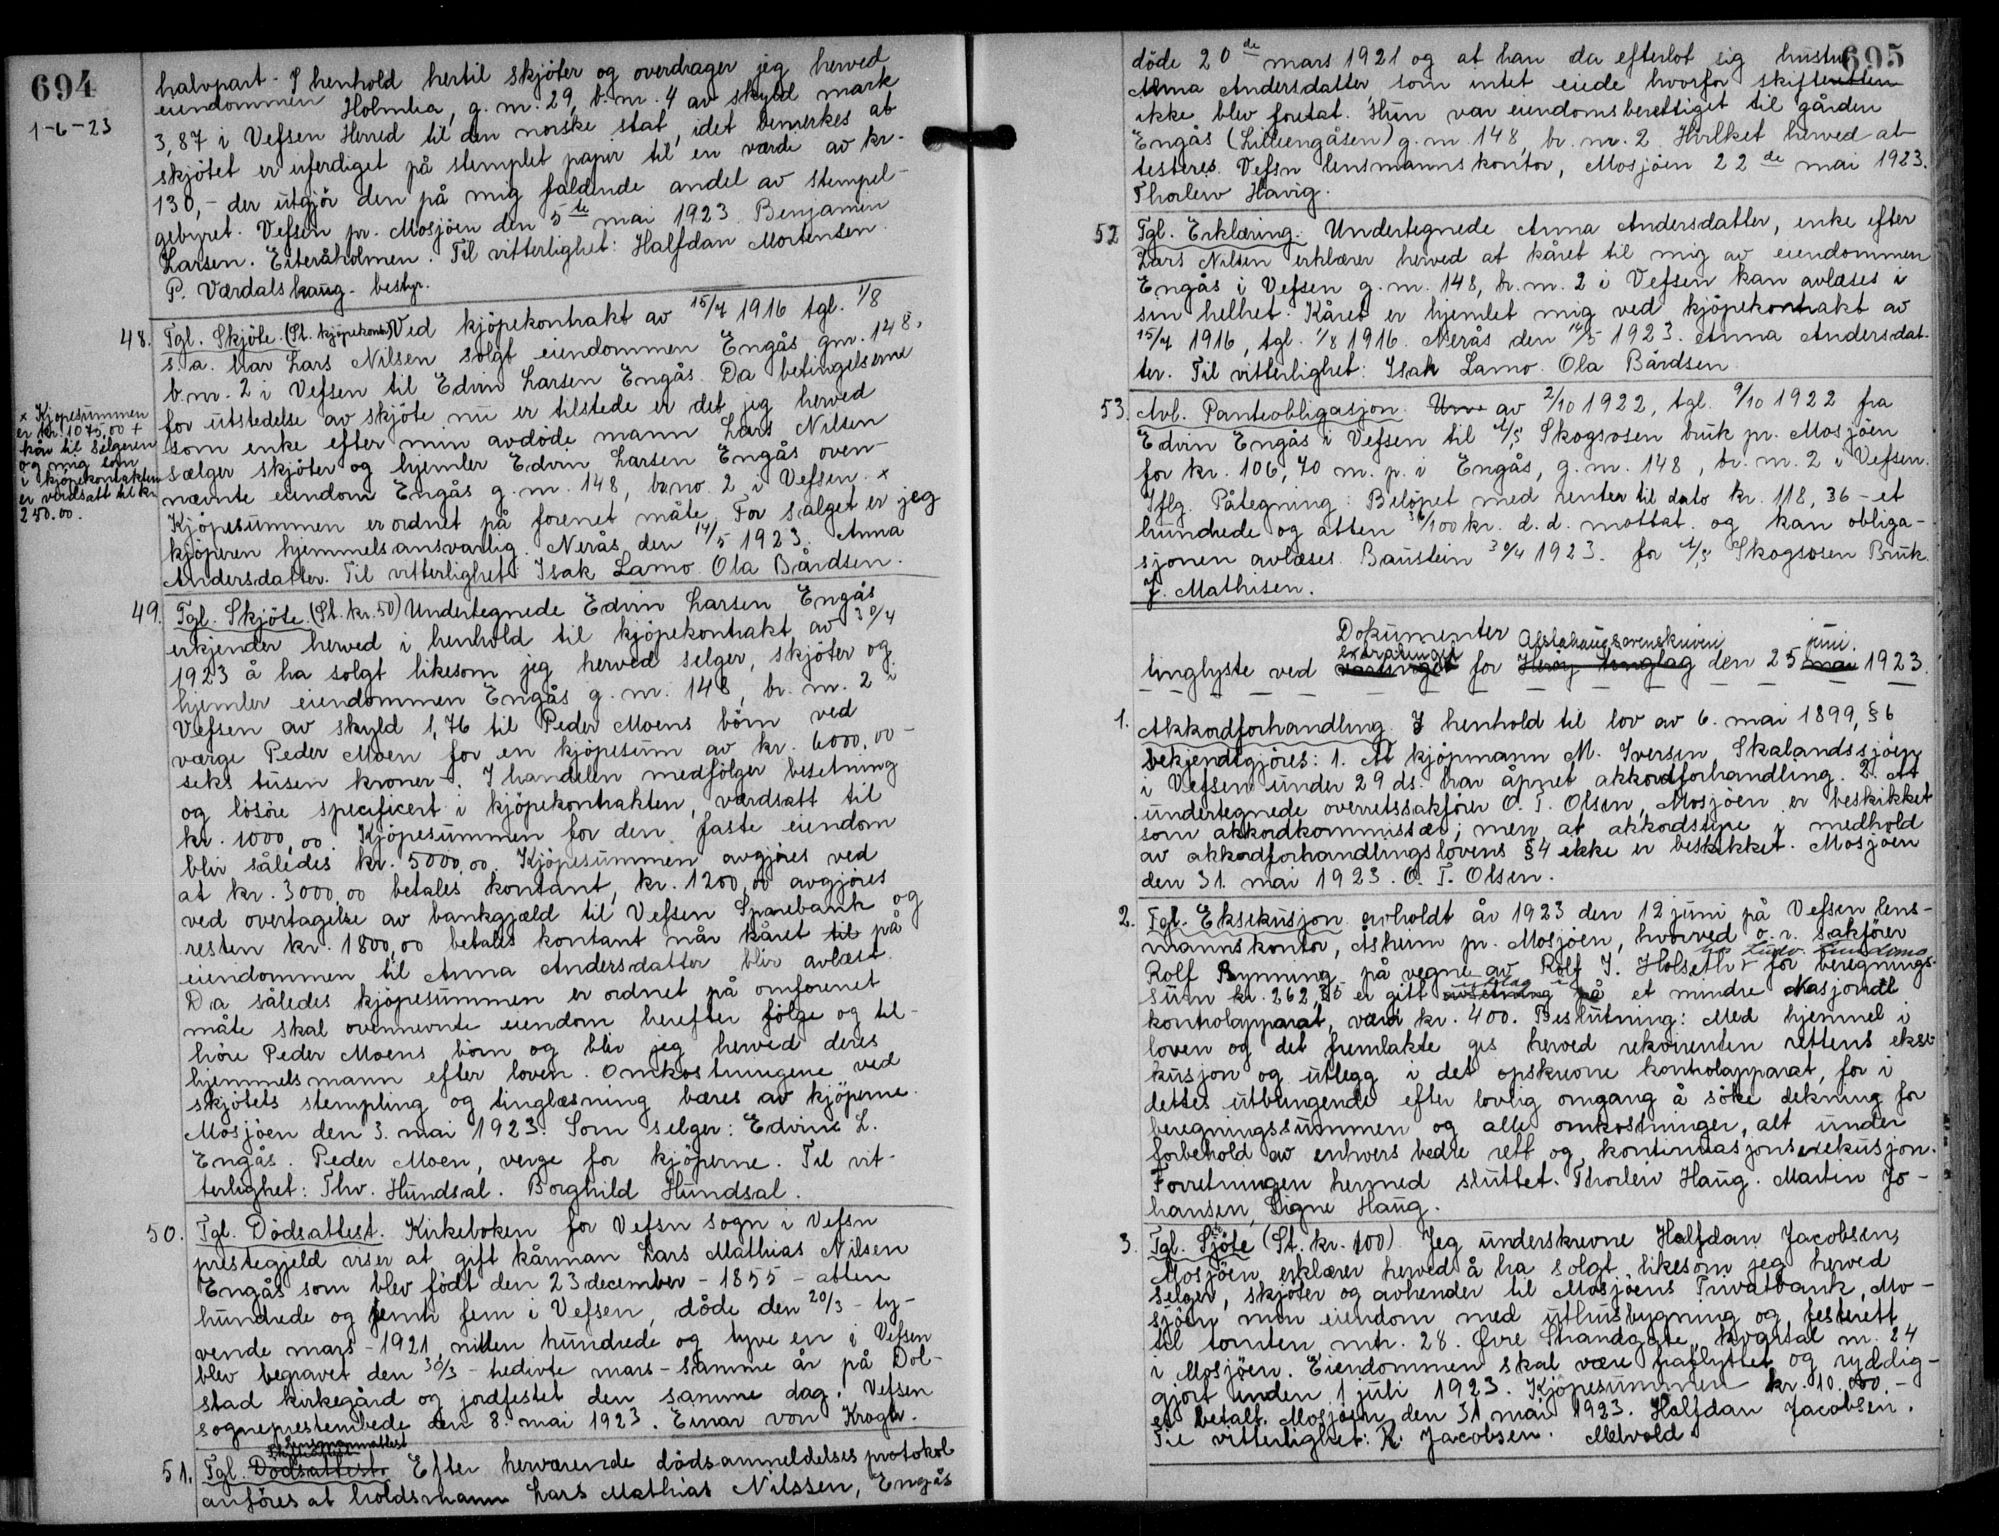 694
1-6-23
halvpart. I henhold hertil skjöter og overdrager jeg herved
eiendommen Holmlia, g. nr. 29, b. nr. 4 av skyld mark
3,87 i Vefsen Herred til den norske stat, idet bemerkes at
skjötet er uferdiget på stemplet papir til en værdi av kr.
130,- der utgjör den på mig faldende andel av stempel-
gebyret. Vefsen pr. Mosjöen den 5te mai 1923. Benjamin
Larsen. Eiteråholmen. Til vitterlighet: Halfdan Mortensen.
P. Værdalshaug. bestyr.
48. Tgl. Skjöte. (St. kjöpekont.) Ved kjöpekontrakt av 15/7 1916 tgl. 1/8
s.a. har Lars Nilsen solgt eiendommen Engås gnr. 148,
b.nr. 2 i Vefsen til Edvin Larsen Engås. Da betingelserne
for utstedelse av skjöte nu er tilstede er det jeg herved
som enke efter min avdöde mann Lars Nilsen
sælger skjöter og hjemler Edvin Larsen Engås oven-
nævnte eiendom Engås g. nr. 148, br.no. 2 i Vefsen. x
Kjöpesummen er ordnet på forenet måte. For salget er jeg
kjöperen hjemmelsansvarlig. Nerås den 14/5 1923. Anna
Andersdatter. Til vitterlighet: Isak Lamo. Ola Bårdsen.
x Kjöpesummen
er kr. 1075,00 +
kår til selgeren
og mig som
i kjöpekontrakten
er værdsatt til kr.
250.00.
49. Tgl. Skjöte. (St. kr. 50) Undertegnede Edvin Larsen Engås
erkjender herved i henhold til kjöpekontrakt av 30/4
1923 å ha solgt likesom jeg herved selger, skjöter og
hjemler eiendommen Engås g. nr. 148, br. nr. 2 i
Vefsen av skyld 1,76 til Peder Moens börn ved
værge Peder Moen for en kjöpesum av kr. 6000,00 -
seks tusen kroner -. I handelen medfölger besetning
og lösöre specificert i kjöpekontrakten, værdsatt til
kr. 1000,00. Kjöpesummen for den faste eiendom
blir således kr. 5000,00. Kjöpesummen avgjöres ved
at kr. 3000,00 betales kontant, kr. 1200,00 avgjöres
ved overtagelse av bankgjæld til Vefsen Sparebank og
resten kr. 1800,00 betales kontant når kåret til på
eiendommen til Anna Andersdatter blir avlæst.
Da således kjöpesummen er ordnet på omforenet
måte skal ovennevnte eiendom herefter fölge og til-
höre Peder Moens börn og blir jeg herved deres
hjemmelsmann efter loven. Omkostningene ved
skjötets stempling og tinglæsning bæres av kjöperne.
Mosjöen den 3. mai 1923. Som selger: Edvin L.
Engås. Peder Moen, verge for kjöperne. Til vit-
terlighet: Thv. Hundsal. Borghild Hundsal.
50. Tgl. Dödsattest. Kirkeboken for Vefsn sogn i Vefsn
prestegjeld viser at gift kårman Lars Mathias Nilsen
Engås som blev födt den 23 december - 1855 - atten
hundrede og femti fem i Vefsen, döde den 20/3 - ty-
vende mars - 1921 nitten hundrede og tyve en i Vefsen
blev begravet den 30/3 - tredivte mars - samme år på Dol-
stad kirkegård og jordfestet den samme dag. Vefsen
sogneprestembede den 8. mai 1923. Einar von Krogh.
51. Tgl. Dödsattest. Lensmannattest Efter herværende dödsanmeldelsesprotokol
anföres at holdsmann Lars Mathias Nilssen, Engås
695
döde 20de mars 1921 og at han da efterlot sig hustru
Anna Andersdatter som intet eiede hvorfor skifteretten
ikke blev foretat. Hun var eiendomsberettiget til gården
Engås (Lilleengåsen) g. nr. 148, br. nr. 2. Hvilket herved at-
testeres. Vefsn lensmannskontor, Mosjöen 22de mai 1923.
Thorleiv Havig.
52 Tgl. Erklæring. Undertegnede Anna Andersdatter, enke efter
Lars Nilsen erklærer herved at kåret til mig av eiendommen
Engås i Vefsen g. nr. 148, br. nr. 2 i Vefsen kan avlæses i
sin helhet. Kåret er hjemlet mig ved kjöpekontrakt av
15/7 1916, tgl. 1/8 1916. Nerås den 14/5 1923. Anna Andersdat-
ter. Til vitterlighet: Isak Lamo. Ola Bårdsen.
53. Avl. Panteobligasjon. av 2/10 1922, tgl. 9/10 1922 fra
Edvin Engås i Vefsen til A/S Skogsosen bruk pr. Mosjöen
for kr. 106,70 m. p. i Engås, g. nr. 148, br. nr. 2 i Vefsen.
Iflg. Påtegning: Belöpet med renter til dato kr. 118,36 - et
hundrede og atten 36/100 kr. d. d. mottat og kan obliga-
sjonen avlæses. Baustein 30/4 1923. for A/S Skogsosen Bruk.
J. Mathisen.
Dokumenter
tinglyste ved for Alstahaugsorenskriveri den 25 juni 1923.
1. Akkordforhandling. I henhold til lov av 6. mai 1899, § 6
bekjendtgjöres: 1. At kjöpmann M. Iversen Skalandssjöen
i Vefsen under 29 ds. har åpnet akkordforhandling. 2. At
undertegnede overretssakförer O. T. Olsen, Mosjöen er beskikket
som akkordkommissær; men at akkordstyre i medhold
av akkordforhandlingslovens § 4 ikke er beskikket. Mosjöen
den 31. mai 1923. O. T. Olsen.
2. Tgl. Eksekusjon avholdt år 1923 den 12 juni på Vefsen lens-
mannskontor, Åsheim pr. Mosjöen, hvorved o. r. sakförer
Rolf Rynning på vegne av Rolf J. Holseth hos Ludv. for beregnings-
sum kr. 262,35 er gitt utlæg i et mindre Nasjonal
kontrolapparat, værd kr. 400. Beslutning: Med hjemmel i
loven og det fremlakte gis herved rekvirenten rettens ekse-
kusjon og utlegg i det opskrevne kontrolapparat, for i
dettes utbringende efter lovlig omgang å söke dekning for
beregningssummen og alle omkostninger, alt under
forbehold av enhvers bedre rett og kontinuasjonsexekusjon.
Forretningen hermed sluttet. Thorleiv Haug. Martin Jo-
hansen, Signe Haug.
3. Tgl. Sjöte (St. kr. 100). Jeg underskrevne Halfdan Jacobsen,
Mosjöen, erklærer herved å ha solgt, likesom jeg herved
selger, skjöter og avhender til Mosjöens Privatbank, Mo-
sjöen min eiendom med uthusbygning og festerett
til tomten mtr. 28. Övre Strandgate, kvartal nr. 24
i Mosjöen. Eiendommen skal være fraflyttet og ryddig-
gjort inden 1 juli 1923. Kjöpesummen kr. 10.000.-
er betalt. Mosjöen den 31 mai 1923. Halfdan Jacobsen.
Til vitterlighet: K. Jacobsen. Melvold.